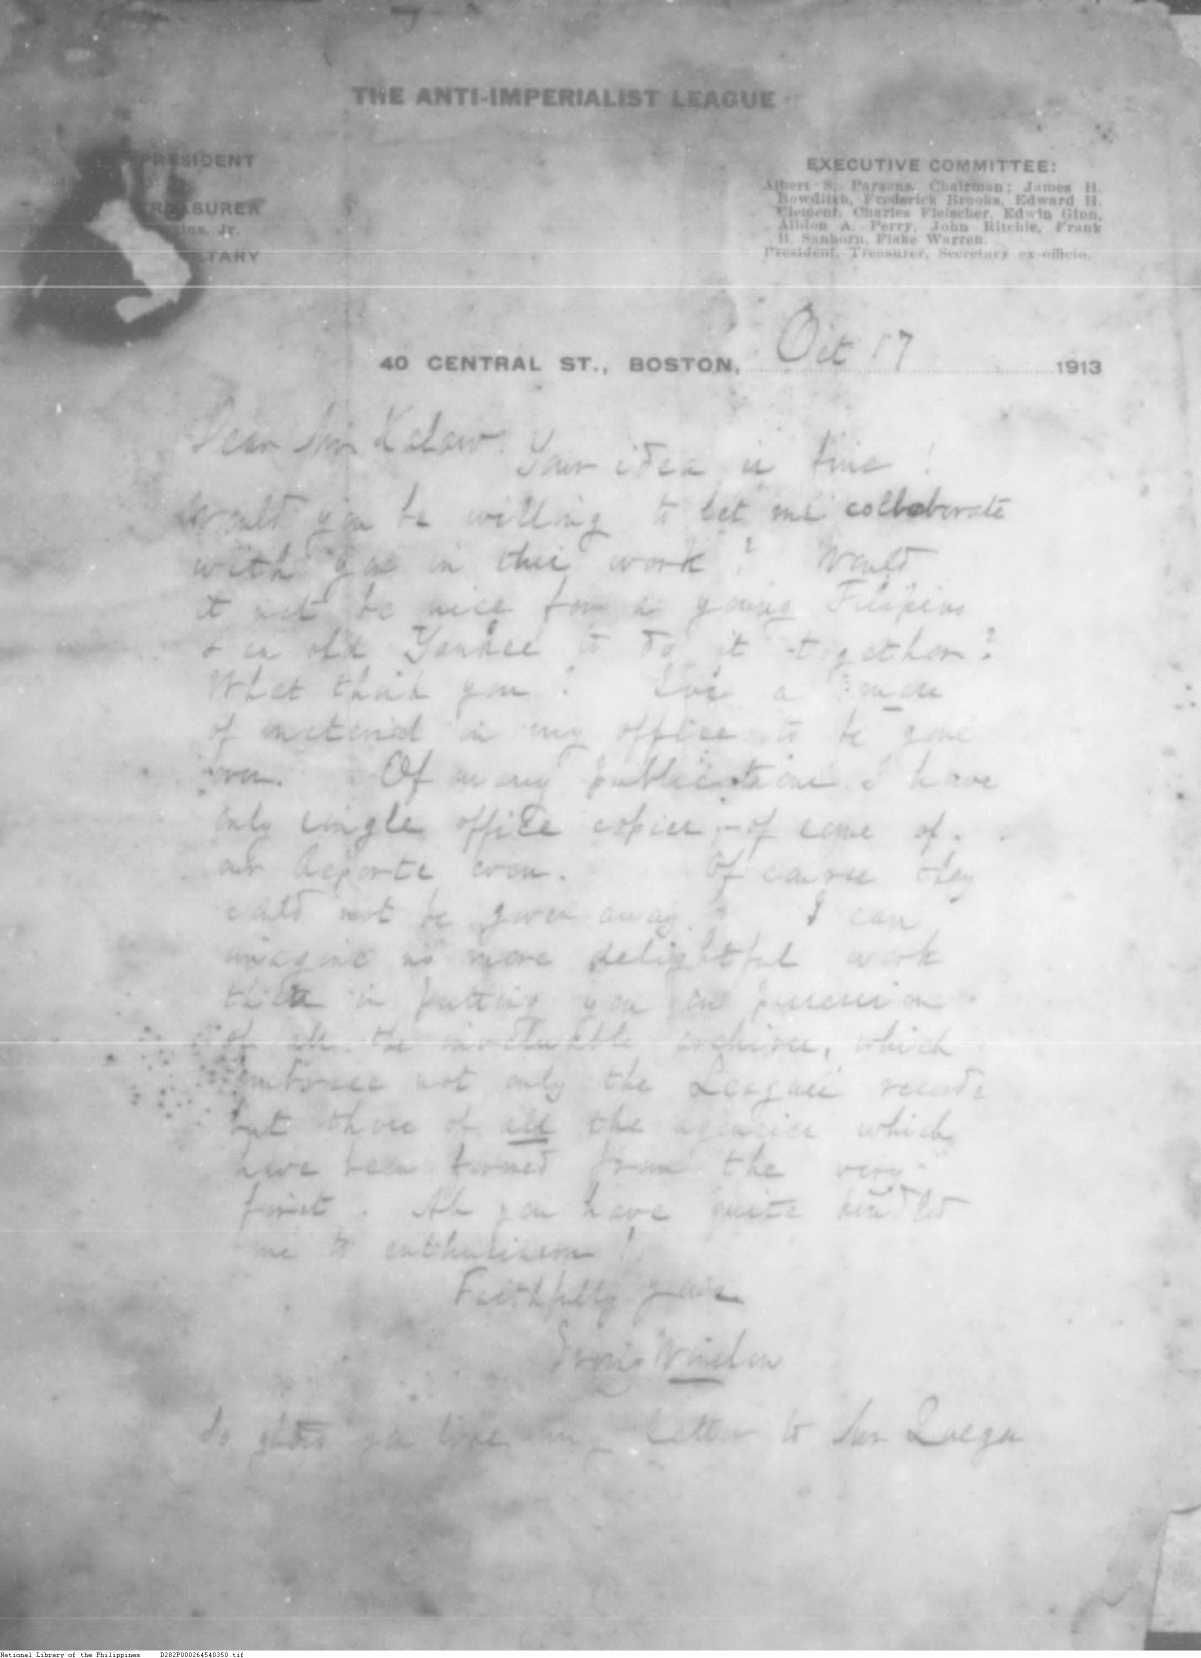 THE ANTI-IMPERIALIST LEAGUE
PRESIDENT
TREASURER
Jr.
EXECUTIVE COMMITTEE:
Albert S. Parsons, Chairman; James H.
Bowditch, Frederick Brooks, Edward H.
Clement, Charles Fleischer, Edwin Ginn,
Albion A. Perry, John Ritchie, Frank
B. Sanborn, Fiske Warren.
President, Treasurer, Secretary ex-officio.
40 CENTRAL ST., BOSTON, Oct 17 1913
Dear Mr Kalaw. Your idea is fine!
Would you be willing to let me collaborate
with you in this work? Would
it not be nice for a young Filipino
& an old Yankee to do it together?
What think you? a mass
of material in my office to be gone
over. Of many publications I have
only single office copies,—of some of
our Reports even. Of course they
could not be given away. I can
imagine no more delightful work
than in putting you in possession
of all the invaluable archives, which
embrace not only the League's records
but those of all the agencies which
have been formed from the very
first. Ah you have quite kindled
me to enthusiasm!
Faithfully yours
Erving Winslow
So glad you like my letter to Mr